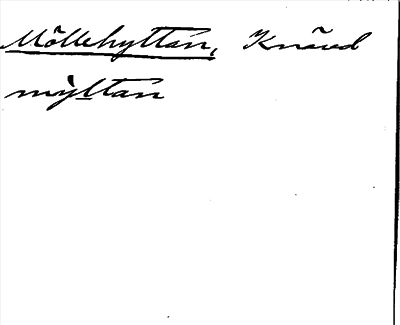 Möllehyttan, Knäred
mỳltan